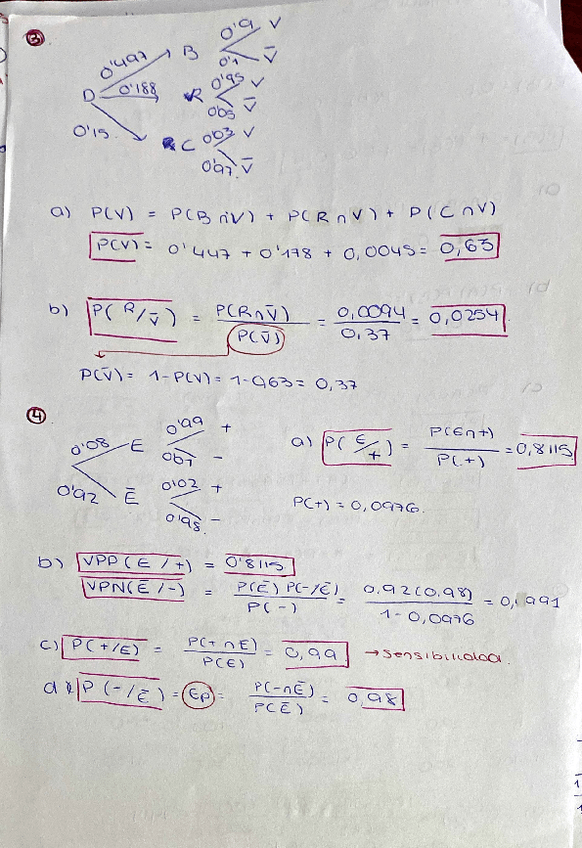 3
0'497 B 0'9 V
0'1 V̄
D 0'188 R 0'95 V
0'05 V̄
0'15 C 0'03 V
0'97 V̄
a) P(V) = P(B∩V) + P(R∩V) + P(C∩V)
P(V) = 0'447 + 0'178 + 0,0045 = 0,63
b) P(R/V̄) = P(R∩V̄) / P(V̄) = 0,0094 / 0,37 = 0,0254
P(V̄) = 1-P(V) = 1-0,63 = 0,37
4
0'08 E 0'99 +
0'01 -
0'92 Ē 0'02 +
0'98 -
a) P(E/+) = P(E∩+) / P(+) = 0,8115
P(+) = 0,0976.
b) VPP(E/+) = 0'8115
VPN(Ē/-) = P(Ē) P(-/Ē) / P(-) = 0,92(0,98) / 1-0,0976 = 0,991
c) P(+/E) = P(+∩E) / P(E) = 0,99 → sensibilidad.
d) P(-/Ē) = Ep = P(-∩Ē) / P(Ē) = 0,98